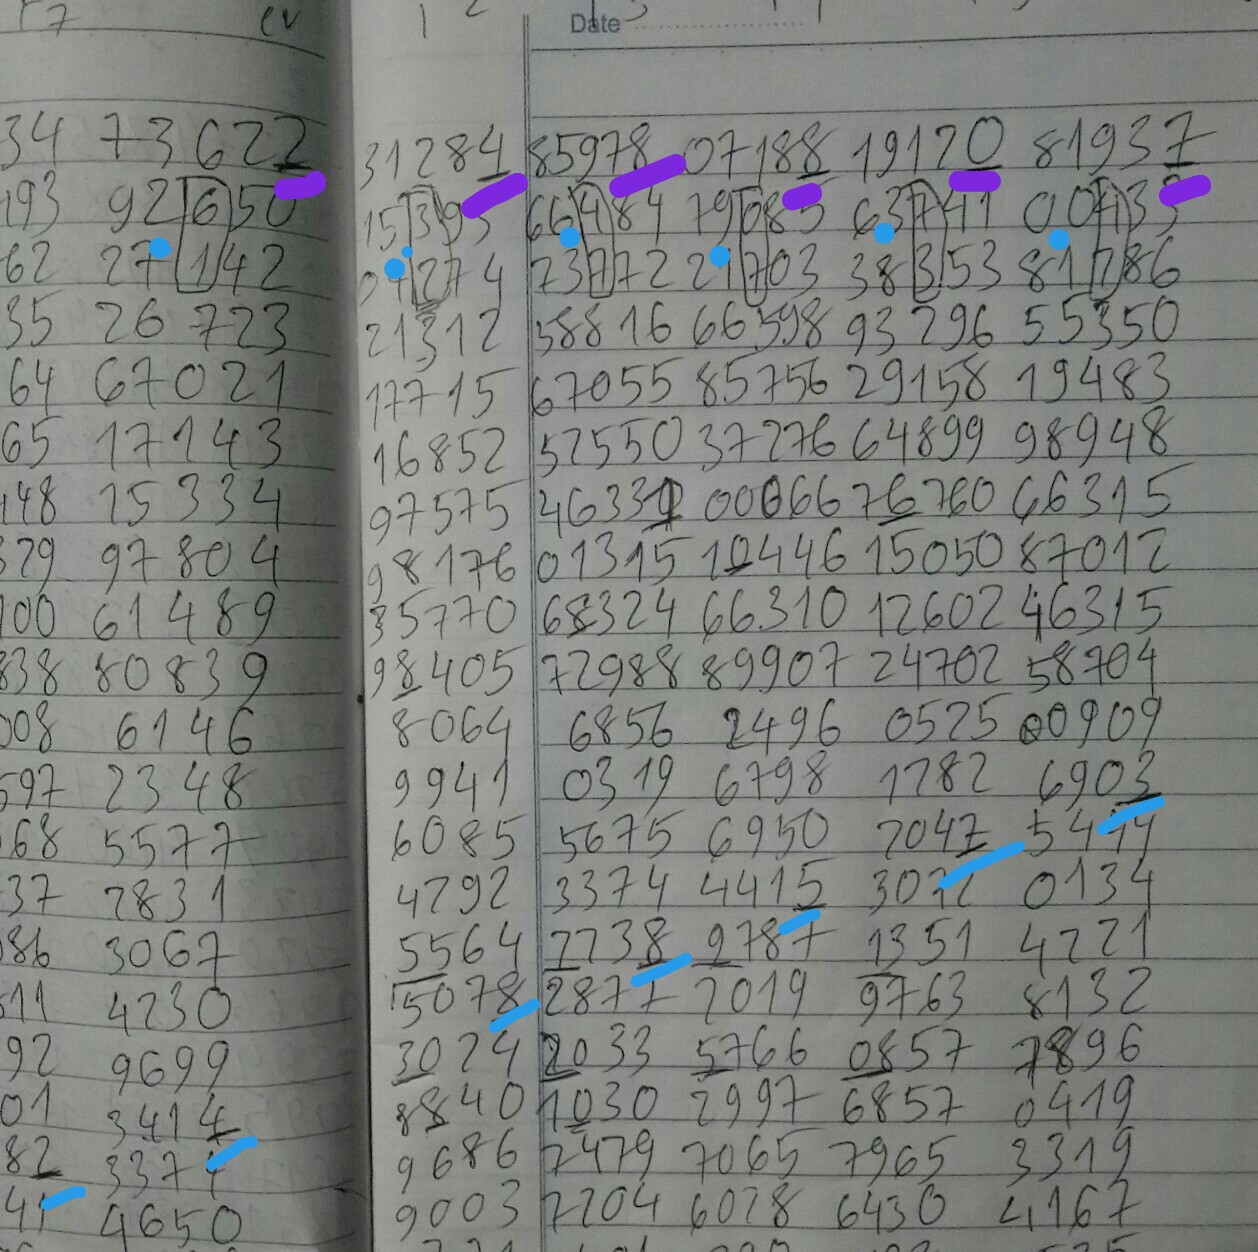 Date
34 73622 31284 85978 07188 19120 81937
193 92650 15393 66484 79085 63741 00433
62 27142 07274 73772 21703 38353 81786
35 26723 21312 58816 66598 93296 55350
64 67021 17715 67055 85756 29158 19483
65 17143 16852 57550 37276 64899 98948
148 15334 97575 46331 00066 76760 66315
329 97804 98176 01315 10446 15050 87012
100 61489 35770 68324 66310 12602 46315
838 80839 98405 72988 89907 24702 58704
008 6146 8064 6856 2496 0525 00909
597 2348 9941 0319 6798 1782 6903
568 5577 6085 5675 6950 7047 5444
37 7831 4792 3374 4415 3071 0134
086 3067 5564 7738 9787 1351 4221
511 4230 5078 2877 7019 9763 8132
92 9699 3024 2033 5766 0857 7896
01 3414 8840 1030 2997 6857 0419
82 3374 9686 7479 7065 7965 3319
41 4650 9003 7704 6078 6430 4167